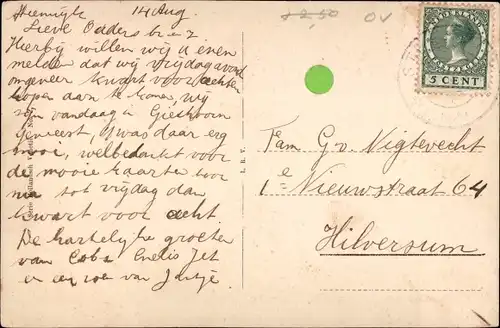 Steenwijk 14 Aug.
Lieve Ouders br. en z.
Hierbij willen wij u even
melden dat wij vrijdagavond
ongeveer kwart voor achten
hopen aan te komen, wij
zijn vandaag in Giethoorn
geweest, 't was daar erg
mooi, wel bedankt voor
de mooie kaarten hoor
nu tot vrijdag dan
kwart voor acht.
De hartelijke groeten
van Coba Jet
en een zoen van Jantje
12,50 OV
NEDERLAND
5 CENT
I.B.V.
Fam. G. v. Vigtevecht
1e Nieuwstraat 64
Hilversum